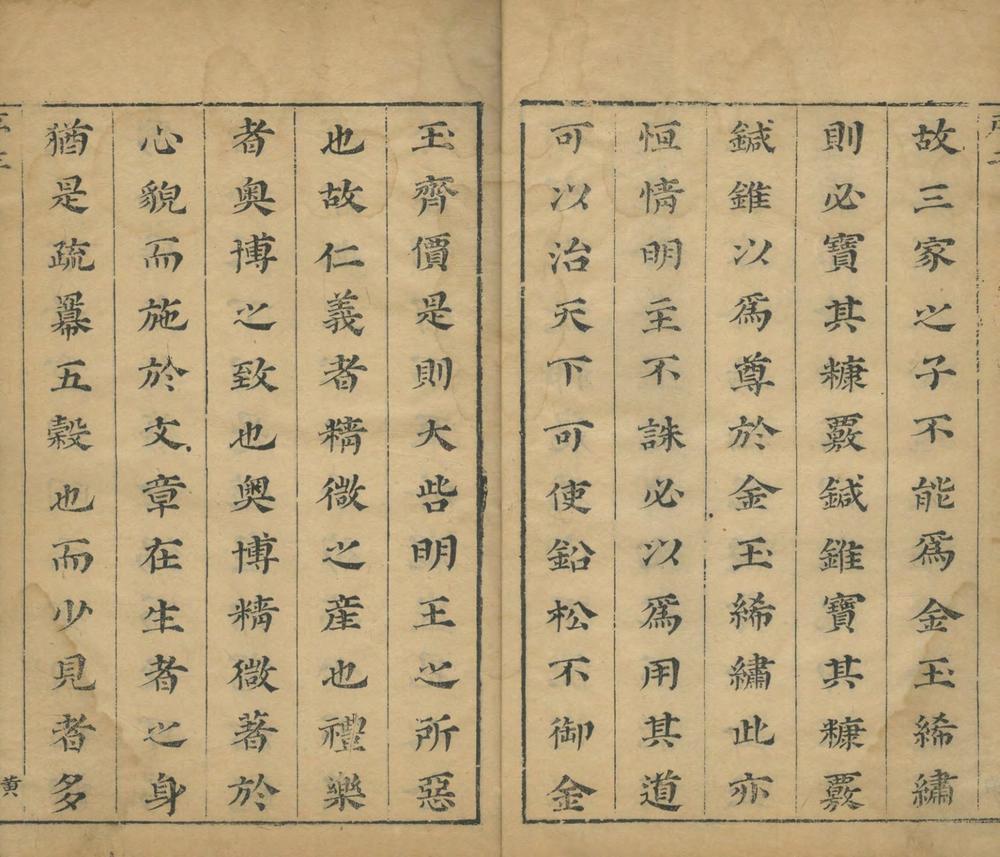 故三家之子不能爲金玉絺繡
則必寶其糠覈鍼錐寶其糠覈
鍼錐以爲尊於金玉絺繡此亦
恒情明主不誅必以爲用其道
可以治天下可使鉛松不御金
玉齊價是則大呰明王之所惡
也故仁義者精微之產也禮樂
者奥博之致也奥博精微著於
心貌而施於文章在生者之身
猶是疏羃五穀也而少見者多
黄